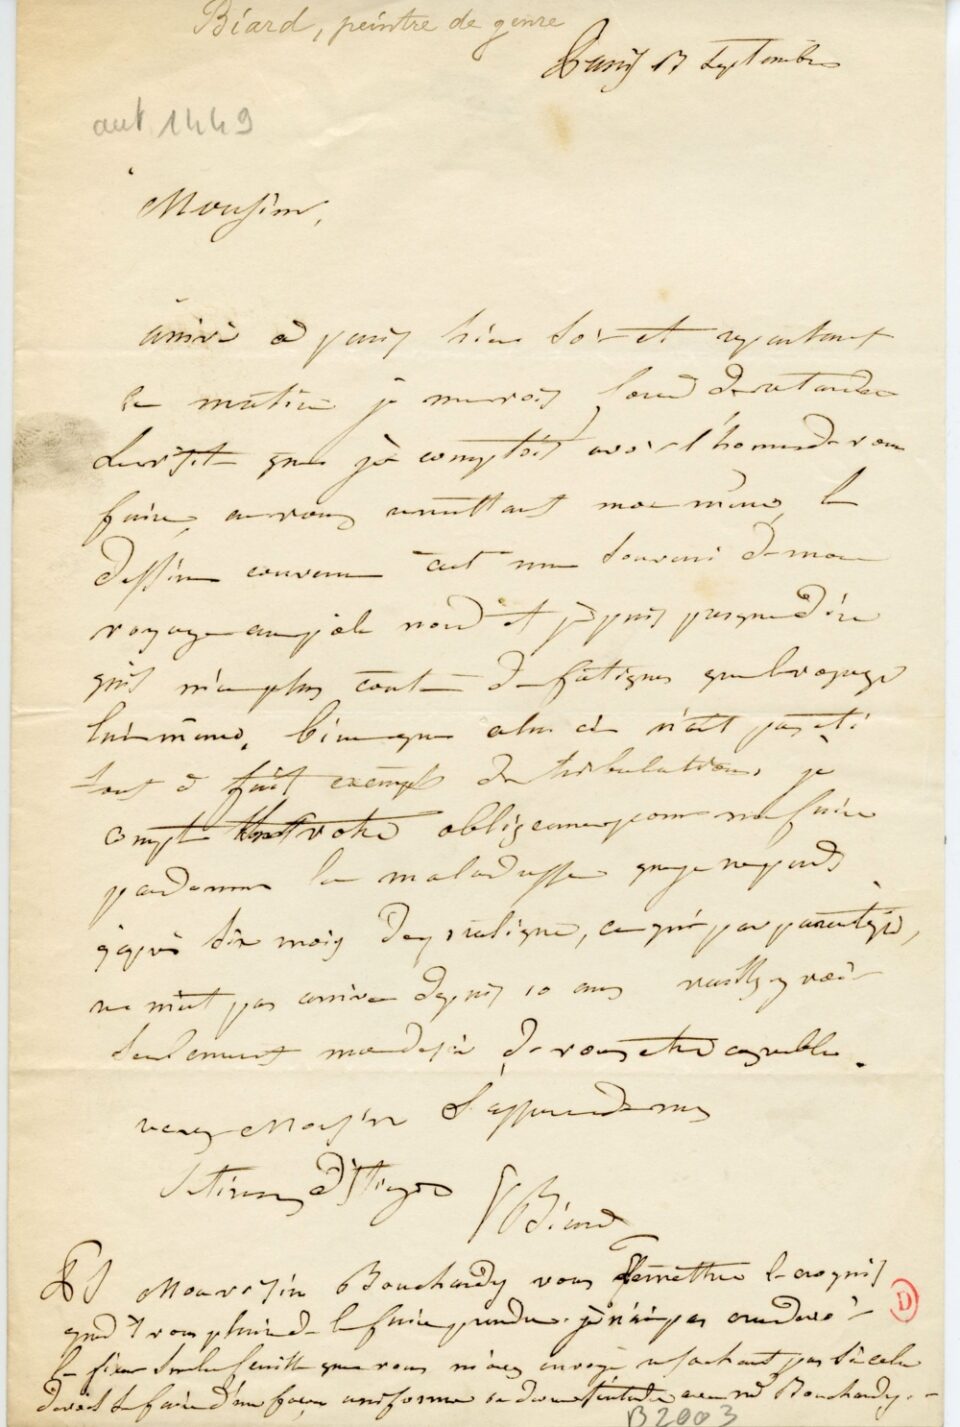 Biard, peintre de genre
Paris 13 Septembre
aut 1449
Monsieur,
arrivé à paris hier soir et repartant
ce matin je me vois forcé de retarder
la visite que je comptois avoir l'honneur de vous
faire, en vous remettant moi même, le
dessin convenu c'est un souvenir de mon
voyage au pole nord et je puis presque dire
qu'il m'a plus couté de fatigues que le voyage
lui même, bien que celui ci n'ait pas été
tout à fait exempt de tribulations, je
compte sur votre obligeance pour me faire
pardonner la maladresse que je
dix mois, ce qui par parenthèse,
ne m'est pas arrivé depuis 10 ans veuillez y voir
seulement mon désir de vous être agréable.
recevez Monsieur l'assurance de mes
sentiments distingués
Biard
PS Mon voisin Bouchardy vous remettra le croquis
quand il vous plaira de le faire prendre. je n'ai pas cru devoir
le fixer sur la feuille que vous m'avez envoyé ne sachant pas si cela
devait se faire d'une façon uniforme Bouchardy.
D
B2003